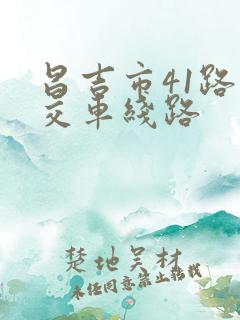 昌吉市41路
交车线路
楚地吴材
未经同意禁止转载